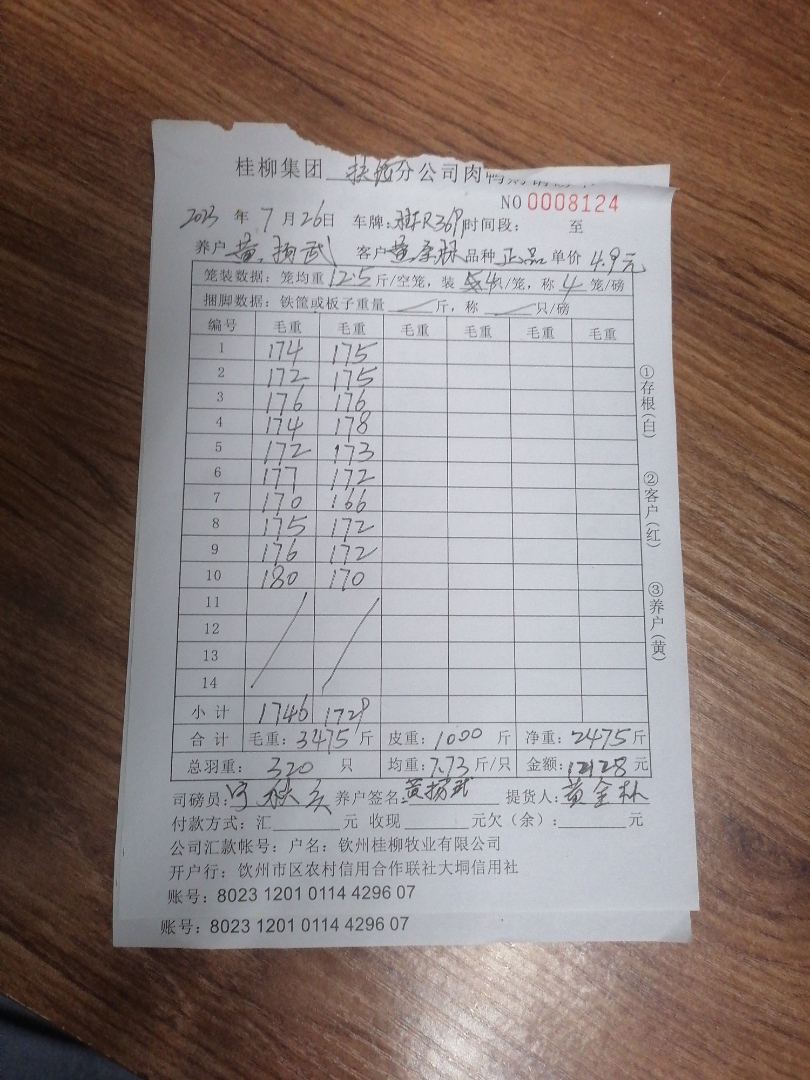 桂柳集团 扶绥分公司肉鸭购销
NO 0008124
2023 年 7 月 26 日 车牌: 时间段: 至
养户 黄扬武 客户 品种 正品 单价 4.9元
笼装数据: 笼均重 12.5 斤/空笼, 装 4只/笼, 称 4 笼/磅
捆脚数据: 铁筐或板子重量 斤, 称 只/磅
编号 毛重 毛重 毛重 毛重 毛重 毛重
1 174 175
2 172 175
3 176 176
4 174 178
5 172 173
6 177 172
7 170 166
8 175 172
9 176 172
10 180 170
11
12
13
14
小计 1746 1729
合计 毛重: 3475 斤 皮重: 1000 斤 净重: 2475 斤
总羽重: 320 只 均重: 7.73 斤/只 金额: 12128 元
司磅员: 养户签名: 黄扬武 提货人: 黄金林
付款方式: 汇 元 收现 元欠(余): 元
公司汇款帐号: 户名: 钦州桂柳牧业有限公司
开户行: 钦州市区农村信用合作联社大垌信用社
账号: 8023 1201 0114 4296 07
账号: 8023 1201 0114 4296 07
①存根(白)
②客户(红)
③养户(黄)